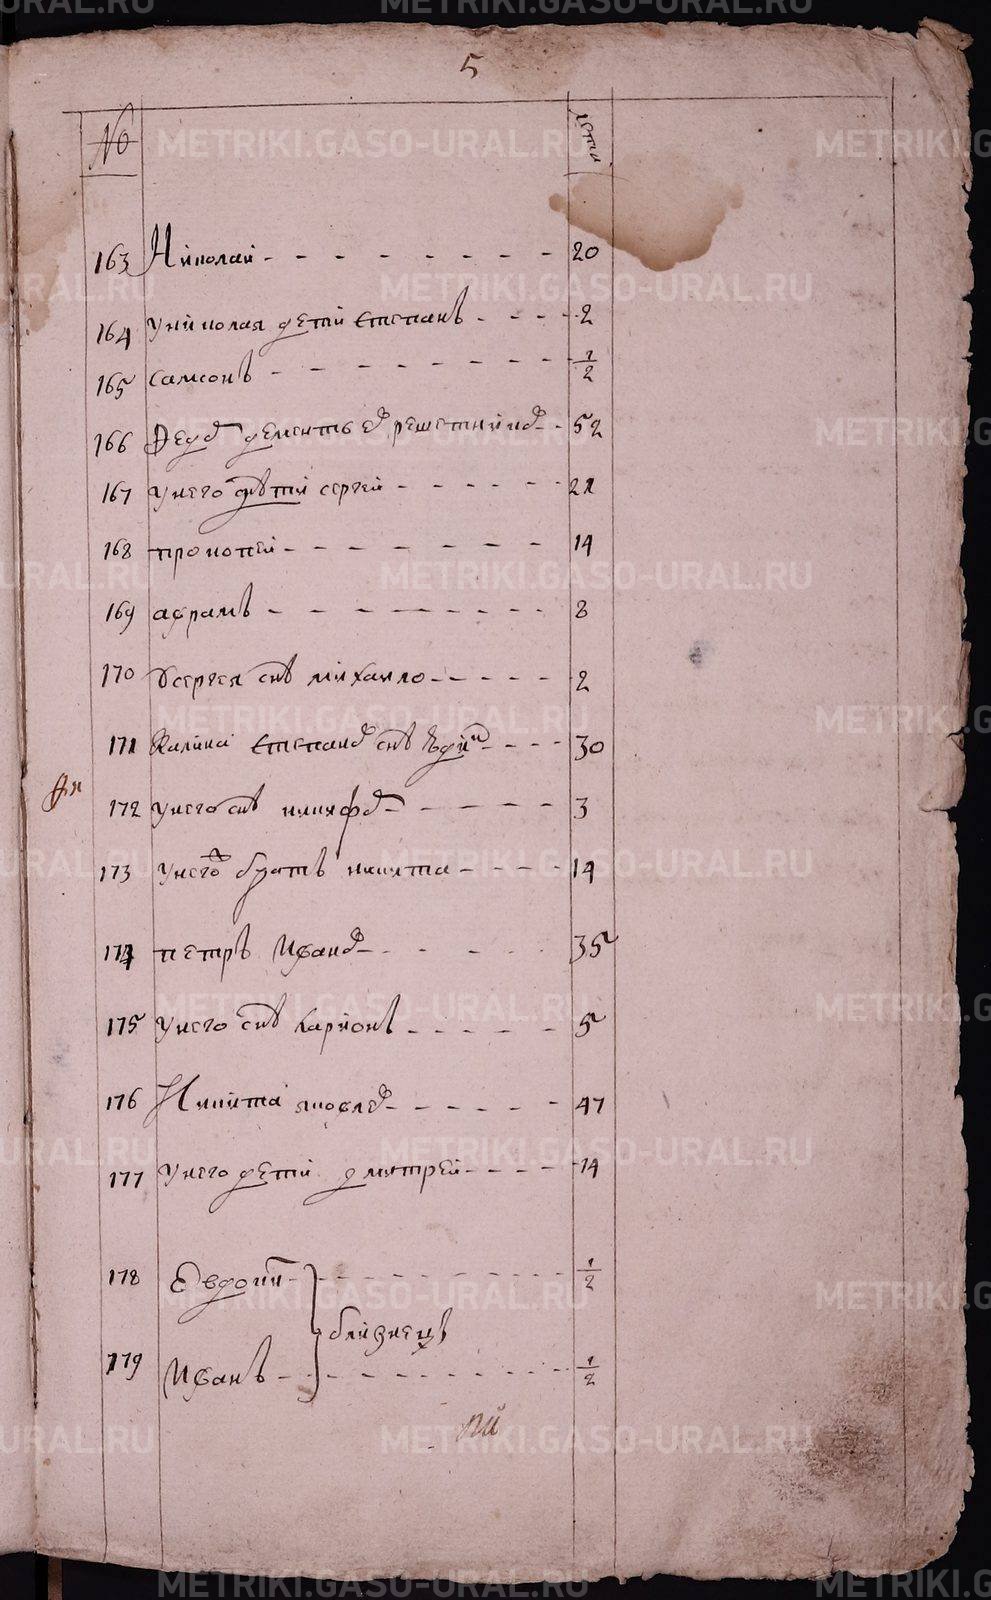 5
№ лета
163 Николай 20
164 У николая дети степанъ 2
165 самсонъ 1/2
166 Федо дементьев решетнико 52
167 у него дѣти сергей 21
168 прокопей 14
169 аврамъ 8
170 У сергея снъ михаило 2
171 Калина степано снъ 30
172 у него снъ никифо 3
173 у него братъ никита 14
174 петръ Ивано 35
175 у него снъ ларионъ 5
176 Никита яковле 47
177 у него дети дмитрей 14
178 Евдоким 1/2
близнецъ
179 Иванъ 1/2
METRIKI.GASO-URAL.RU